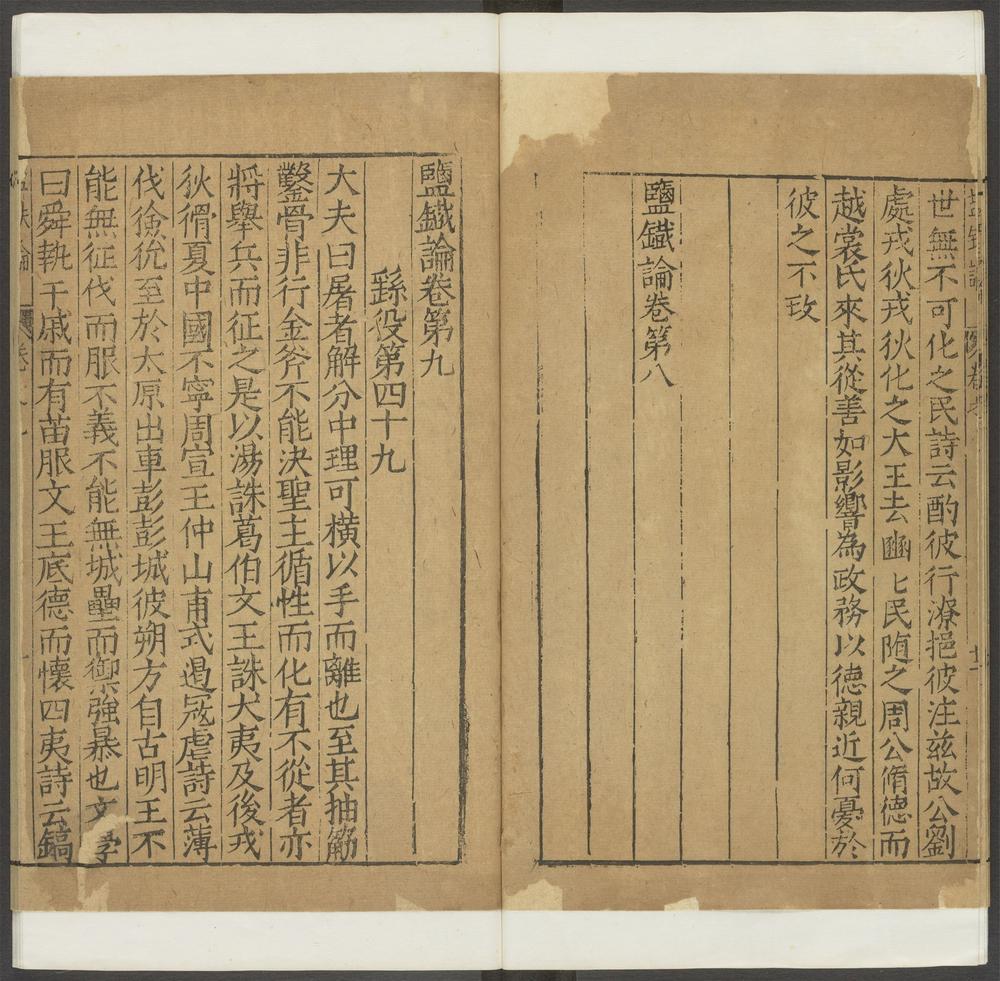 世無不可化之民詩云酌彼行潦挹彼注茲故公劉
處戎狄戎狄化之大王去豳匕民隨之周公脩德而
越裳氏來其從善如影響為政務以德親近何憂於
彼之不攻
鹽鐵論卷第八
鹽鐵論卷第九
繇役第四十九
大夫曰屠者解分中理可橫以手而離也至其抽筋
鑿骨非行金斧不能決聖主循性而化有不從者亦
將舉兵而征之是以湯誅葛伯文王誅犬夷及後戎
狄猾夏中國不寧周宣王仲山甫式遏寇虐詩云薄
伐獫狁至於太原出車彭彭城彼朔方自古明王不
能無征伐而服不義不能無城壘而禦強暴也文學
曰舜執干戚而有苗服文王底德而懷四夷詩云鎬